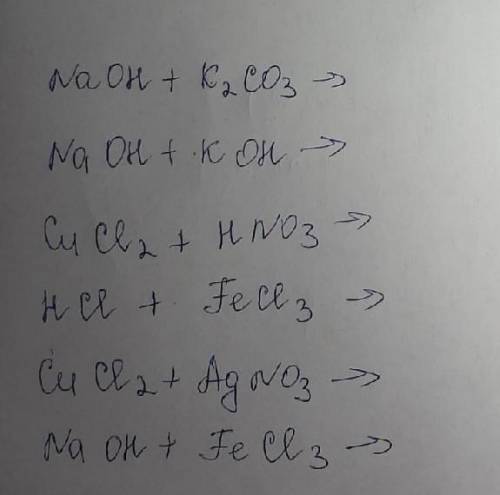 NaOH + K₂CO₃ →
NaOH + KOH →
CuCl₂ + HNO₃ →
HCl + FeCl₃ →
CuCl₂ + AgNO₃ →
NaOH + FeCl₃ →